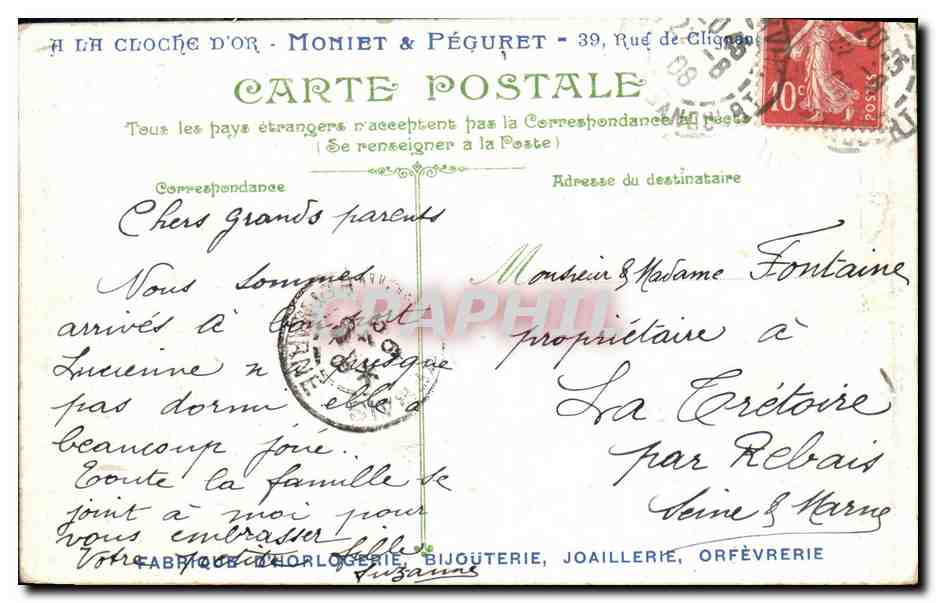 A LA CLOCHE D'OR - MONIET & PÉGURET - 39, Rue de Clignan
CARTE POSTALE
Tous les pays étrangers n'acceptent pas la Correspondance au recto
(Se renseigner a la Poste)
Correspondance
Chers grands parents
Nous sommes
arrivés à bon port
Lucienne n'a presque
pas dormi elle a
beaucoup joué..
Toute la famille se
joint à moi pour
vous embrasser
Votre petite fille
Suzanne
Adresse du destinataire
Monsieur & Madame Fontaine
propriétaire à
La Trétoire
par Rebais
Seine & Marne
FABRIQUE D'HORLOGERIE, BIJOUTERIE, JOAILLERIE, ORFÈVRERIE
10c
POSTES
08
MARNE
CPAPHIL